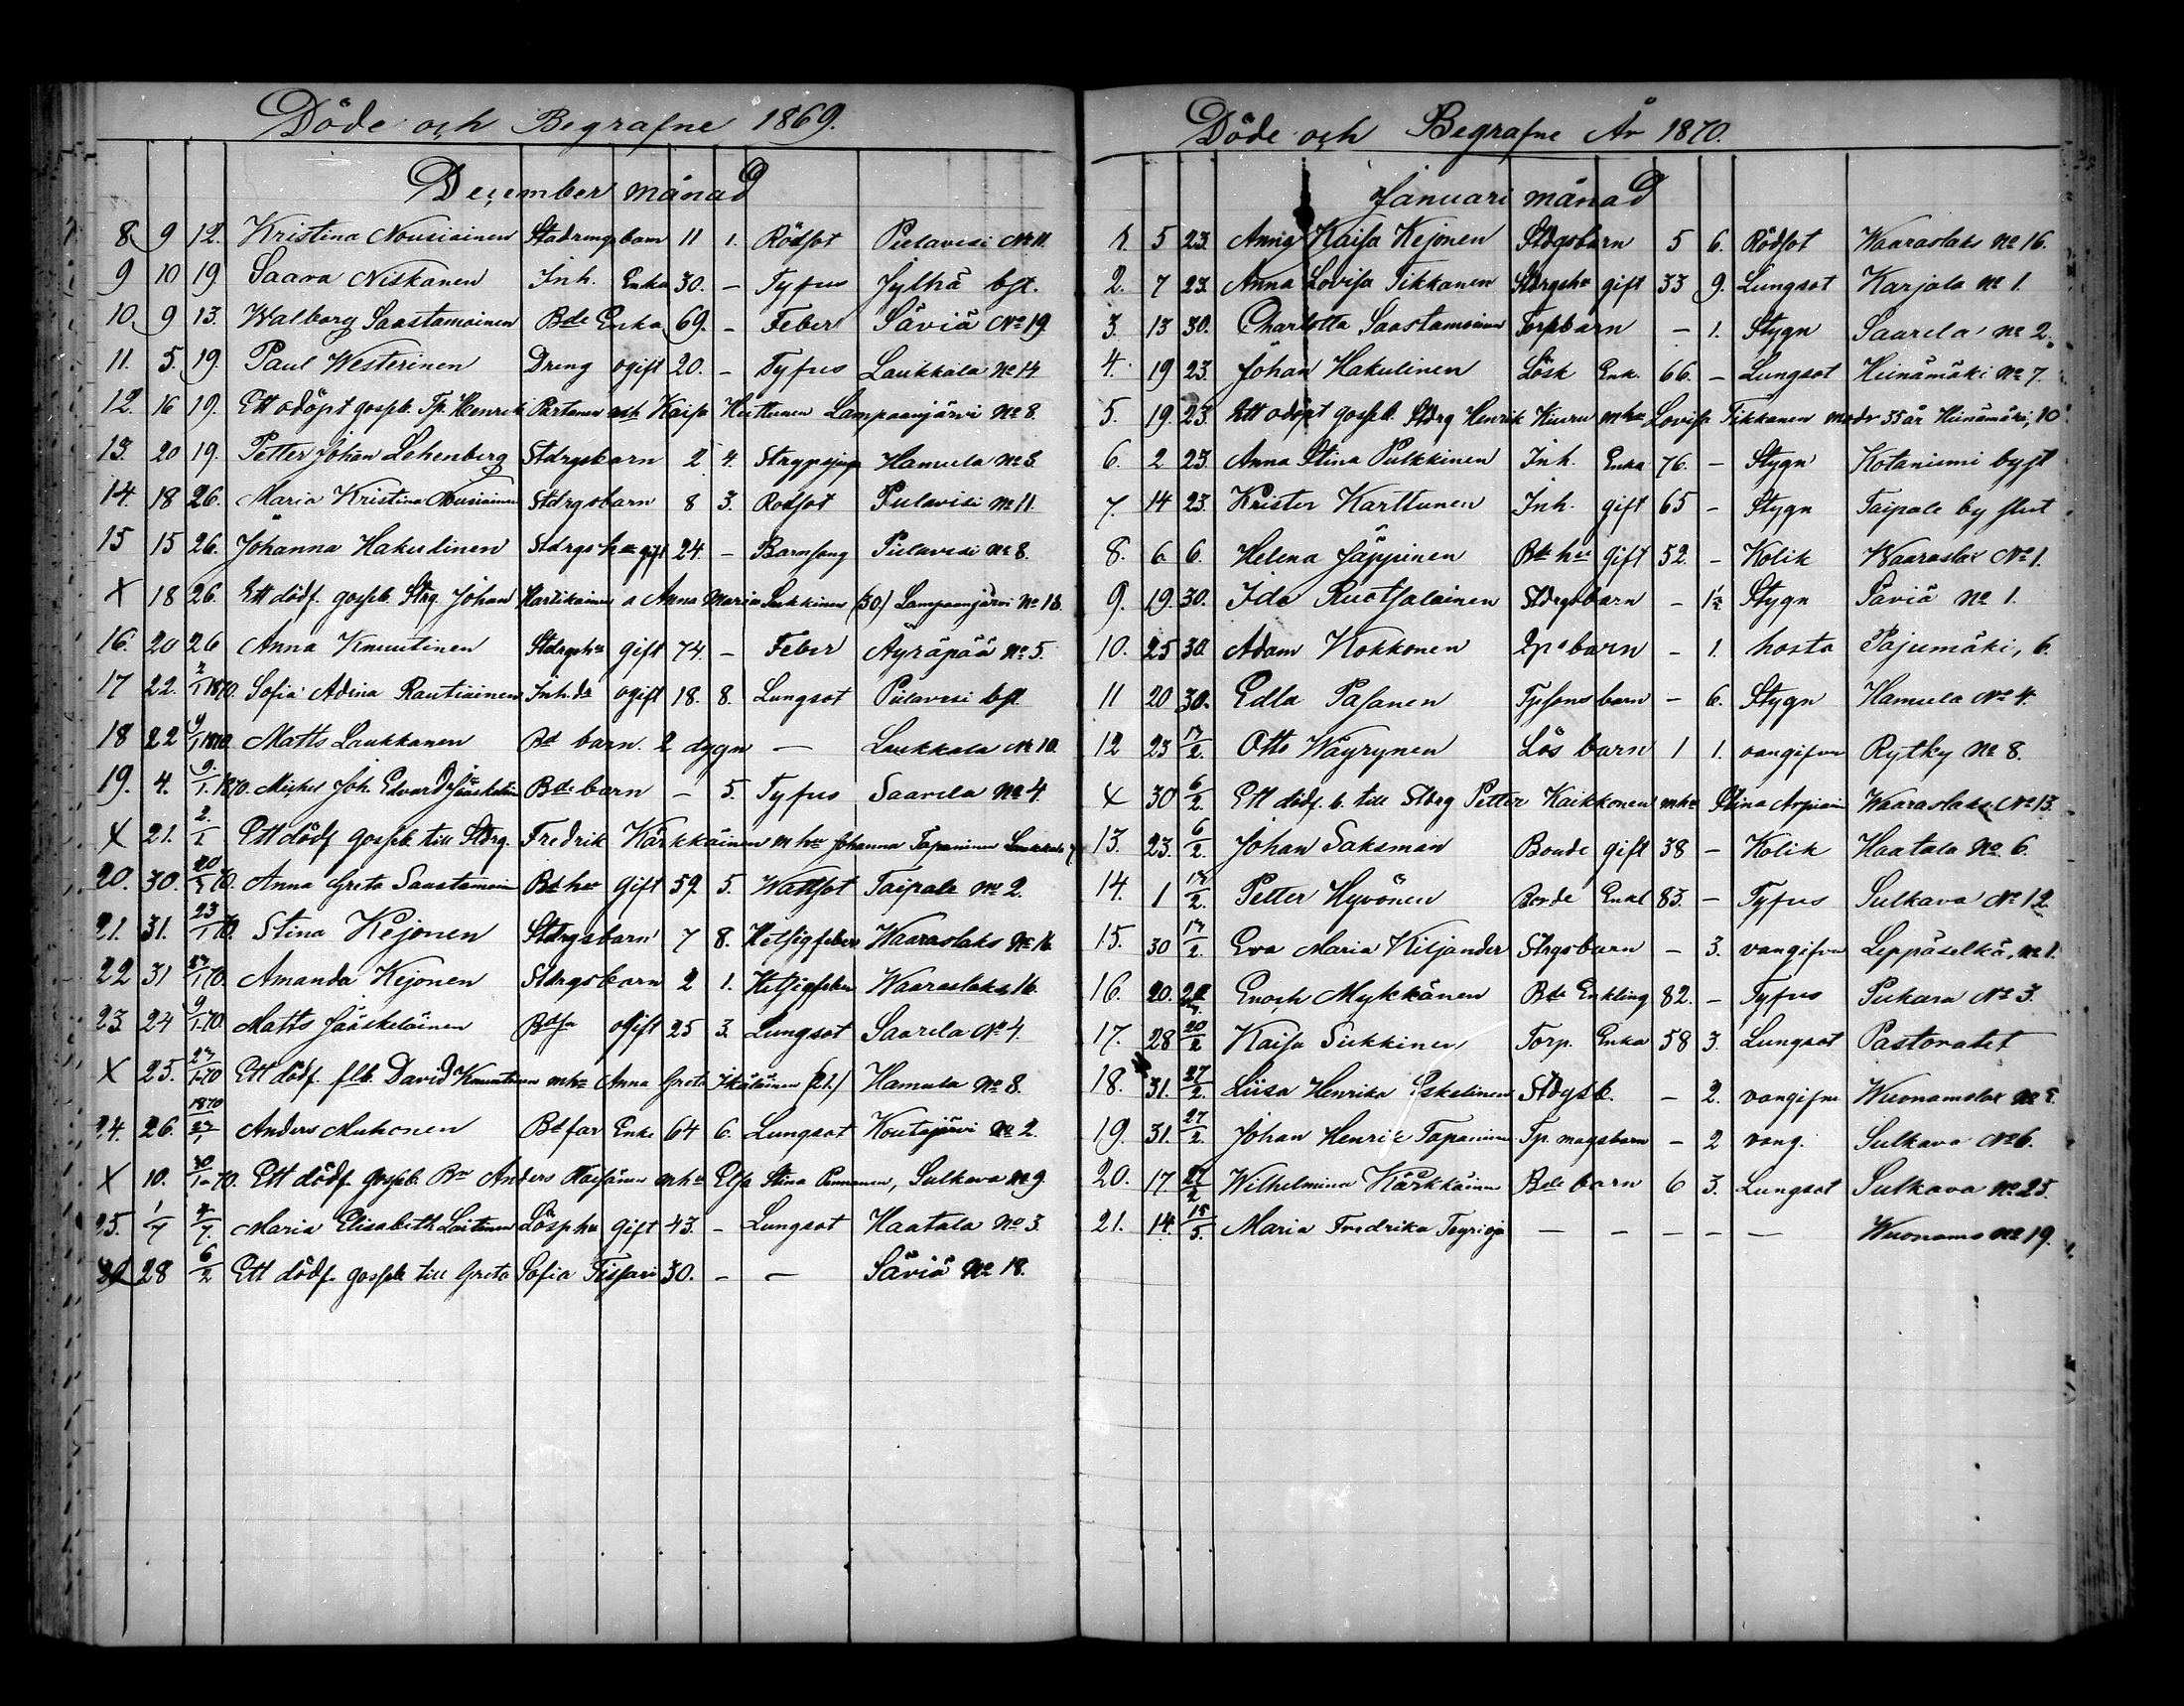 Döde och Begrafne 1869.
December månad
8 9 12. Kristina Nousiainen Stadrengsbarn 11 1. Rödsot Pielavesi No 11.
9 10 19. Saara Niskanen Inh. Enka 30. – Tyfus Jylhä bst.
10. 9 13. Walborg Saastamoinen Bde Enka 69. – Feber Säviä No 19.
11. 5. 19. Paul Westerinen Dreng ogift 20. – Tyfus Laukkala No 14
12. 16 19. Ett odöpt gossb. Tp. Henrik Partanen och Kaisa Huttunen Lampaanjärvi No 8.
13. 20 19. Petter Johan Lehenberg Stdrgsbarn 2 4. Strypsjuga Hamula No 3.
14. 18 26. Maria Kristina Nousiainen Stdrgsbarn 8 3. Rödsot Pielavesi No 11.
15 15 26. Johanna Hakulinen Stdrgs hu gift 24. – Barnsäng Pielavesi No 8.
X 18 26. Ett dödf. gossb. Strg. Johan Hartikainen o Anna Maria Sirkkinen (30.) Lampaanjärvi No 18.
16. 20 26 Anna Knuutinen Stdrgshu gift 74. – Feber Äyräpää No 5.
17 22. 2/1 1870. Sofia Adina Rautiainen Inh.dr ogift 18. 8. Lungsot Pielavesi bst.
18 22 9/1 1870. Matts Laukkanen Bd barn. 2 dygn — Laukkala No 10.
19. 4. 9./1. 1870. Michel Joh. Edvard Jääskeläin Bde barn – 5. Tyfus Saarela No 4.
X 21. 2./1 Ett dödf gossb. till Stdrg. Fredrik Kärkkäinen m hu Johanna Tapaninen Laukkala 7
20. 30. 20/3 70. Anna Greta Saastamoin Bd hu gift 59. 5. Wattsot Taipale No 2.
21. 31. 23/1 70. Stina Kejonen Stdrgsbarn 7 8. Hetsigfeber Waaraslaks No 16.
22 31 23/1 70. Amanda Kejonen Stdrgsbarn 2 1. Hetsigfeber Waaraslaks 16.
23 24 9/1 70. Matts Jääskeläinen Bdsn ogift 25 3. Lungsot Saarela No 4.
X 25. 23/1 70 Ett dödf. flb. David Knuutinen mhu Anna Greta Ikäläinen (21.) Hamula No 8.
24. 26. 1870 23/1 Anders Muhonen Bd far Enkl 64 6. Lungsot Koutajärvi No 2.
X 10. 30/1 70. Ett dödf gossb. Bn Anders Raisänen mhu Elsa Stina Pennanen, Sulkava No 9.
25. 1/7 7/7. Maria Elisabeth Laitinen Lösp hu gift 43. – Lungsot Haatala No 3.
28 6/2 Ett dödf. gossb. till Greta Sofia Tissari 30. – — Säviä No 18.
Döde och Begrafne År 1870.
Januari månad
1. 5 23. Anna Kaisa Kejonen Stdgsbarn 5 6. Rödsot Waaraslaks No 16.
2. 7 23. Anna Lovisa Tikkanen Stdrgshu gift 33 9. Lungsot Karjala No 1.
3. 13 30. Charlotta Saastamoinen Torpbarn – 1. Stygn Saarela No 2.
4. 19 23. Johan Hakulinen Lösk Enk. 66. – Lungsot Heinämäki No 7.
5. 19. 23. Ett odöpt gossb. Stdrg Henrik Kiuru mhu Lovisa Tikkanen modr 35 år Heinämäki, 10
6. 2 23. Anna Stina Pulkkinen Inh. Enka 76. – Stygn Kotaniemi byst
7. 14 23. Krister Karttunen Inh. gift 65 – Stygn Taipale by slut
8. 6. 6. Helena Jäppinen Bde hu gift 52. – Kolik Waaraslax No 1.
9. 19. 30. Ida Ruotsalainen Stdrgsbarn – 1½ Stygn Säviä No 1.
10. 25 30. Adam Kokkonen barn – 1. hosta Pajumäki, 6.
11 20 30. Edla Pasanen Tpsons barn – 6. Stygn Hamula No 4.
12 23 13/2. Otto Wäyrynen Lös barn 1 1. oangifven Rytky No 8.
X 30 6/2. Ett dödf. b. till Stdrg Petter Kaikkonen mhu Stina Arpiain Waaraslaks No 13.
13. 23. 6/2. Johan Saksman Bonde gift 38 – Kolik Haatala No 6.
14. 1 13/2. Petter Hyvönen Bonde Enkl 83. – Tyfus Sulkava No 12.
15. 30 13/2. Eva Maria Kiljander Stdrgsbarn – 3. oangifven Leppäselkä, No 1.
16. 20. Enoch Mykkänen Bde Enkling 82. – Tyfus Pukara No 3.
17. 28 20/2 Kaisa Sirkkinen Torp. Enka 58 3. Lungsot Pastoratet
18. 31. 27/2. Liisa Henrika Eskelinen Stdgsb. – 2. oangifne Wuonamolax No 5.
19. 31. 27/2. Johan Henric Tapaninen Tp. magsbarn – 2 oang. Sulkava No 6.
20. 17. 27/2 Wilhelmina Kärkkäinen Bde barn 6 3. Lungsot Sulkava No 25.
21. 14. 15/5. Maria Fredrika — – – – — Wuonamo No 19.